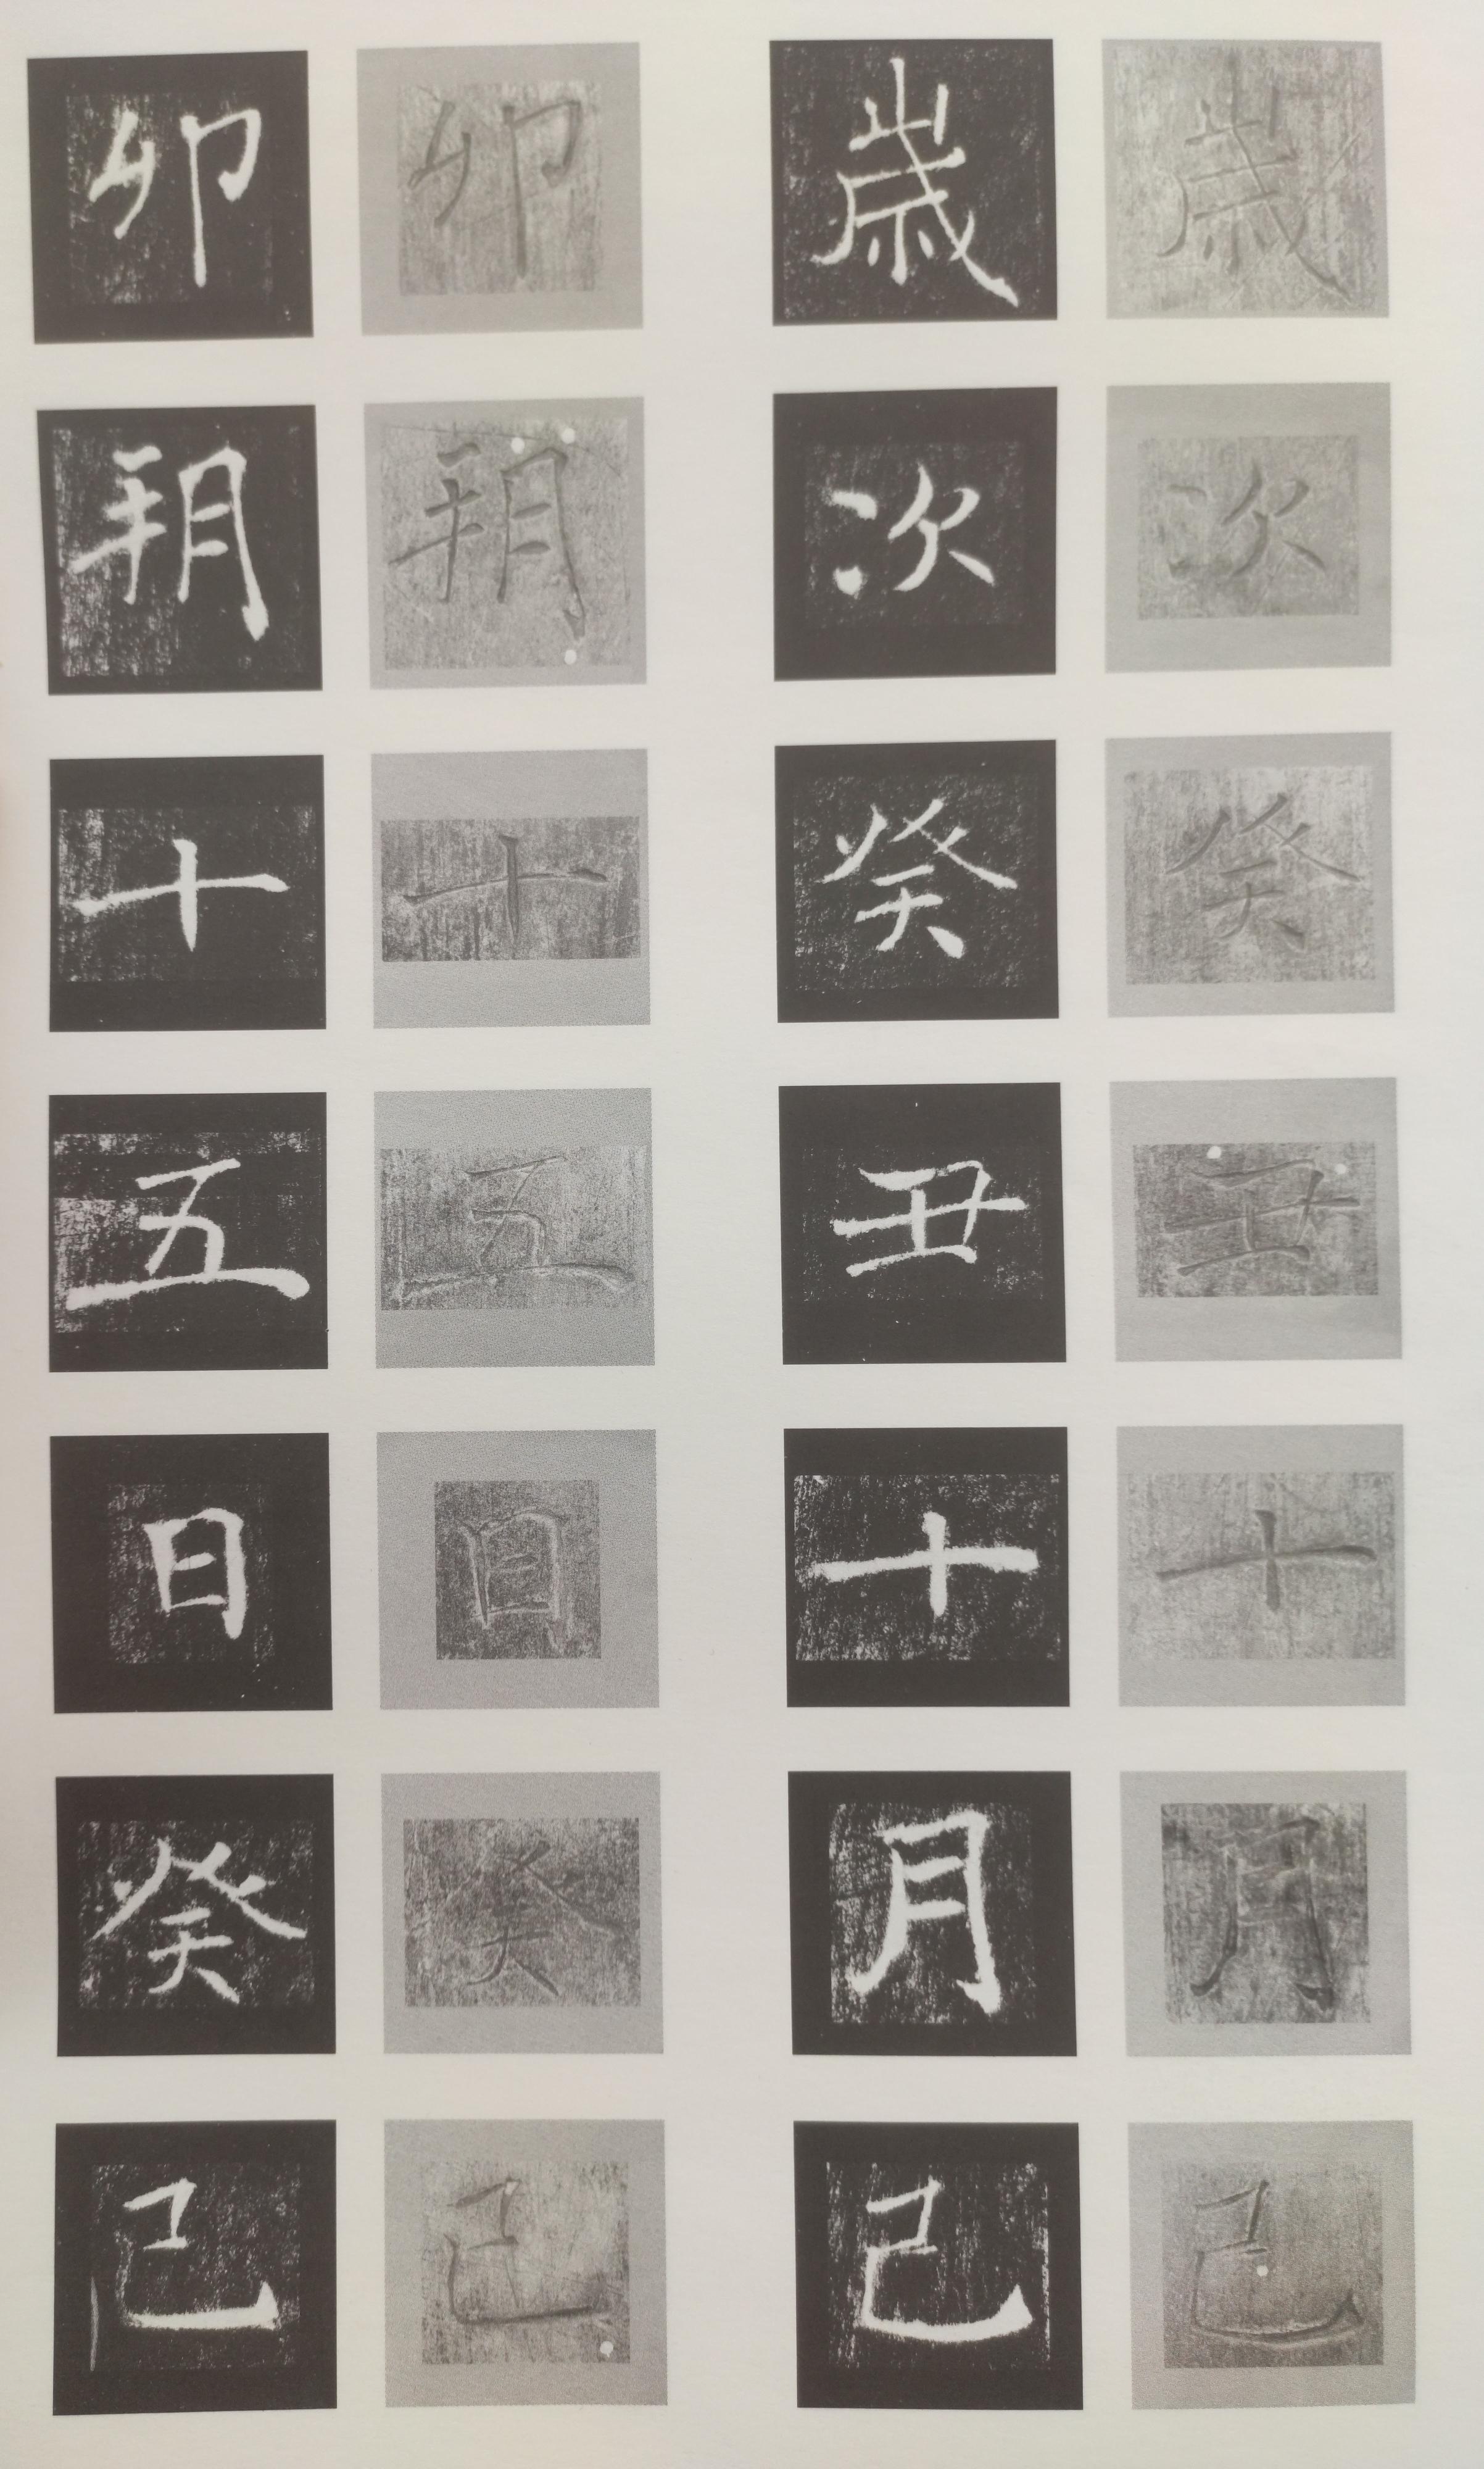 歳次癸丑十月己
歳次癸丑十月己
卯朔十五日癸己
卯朔十五日癸己